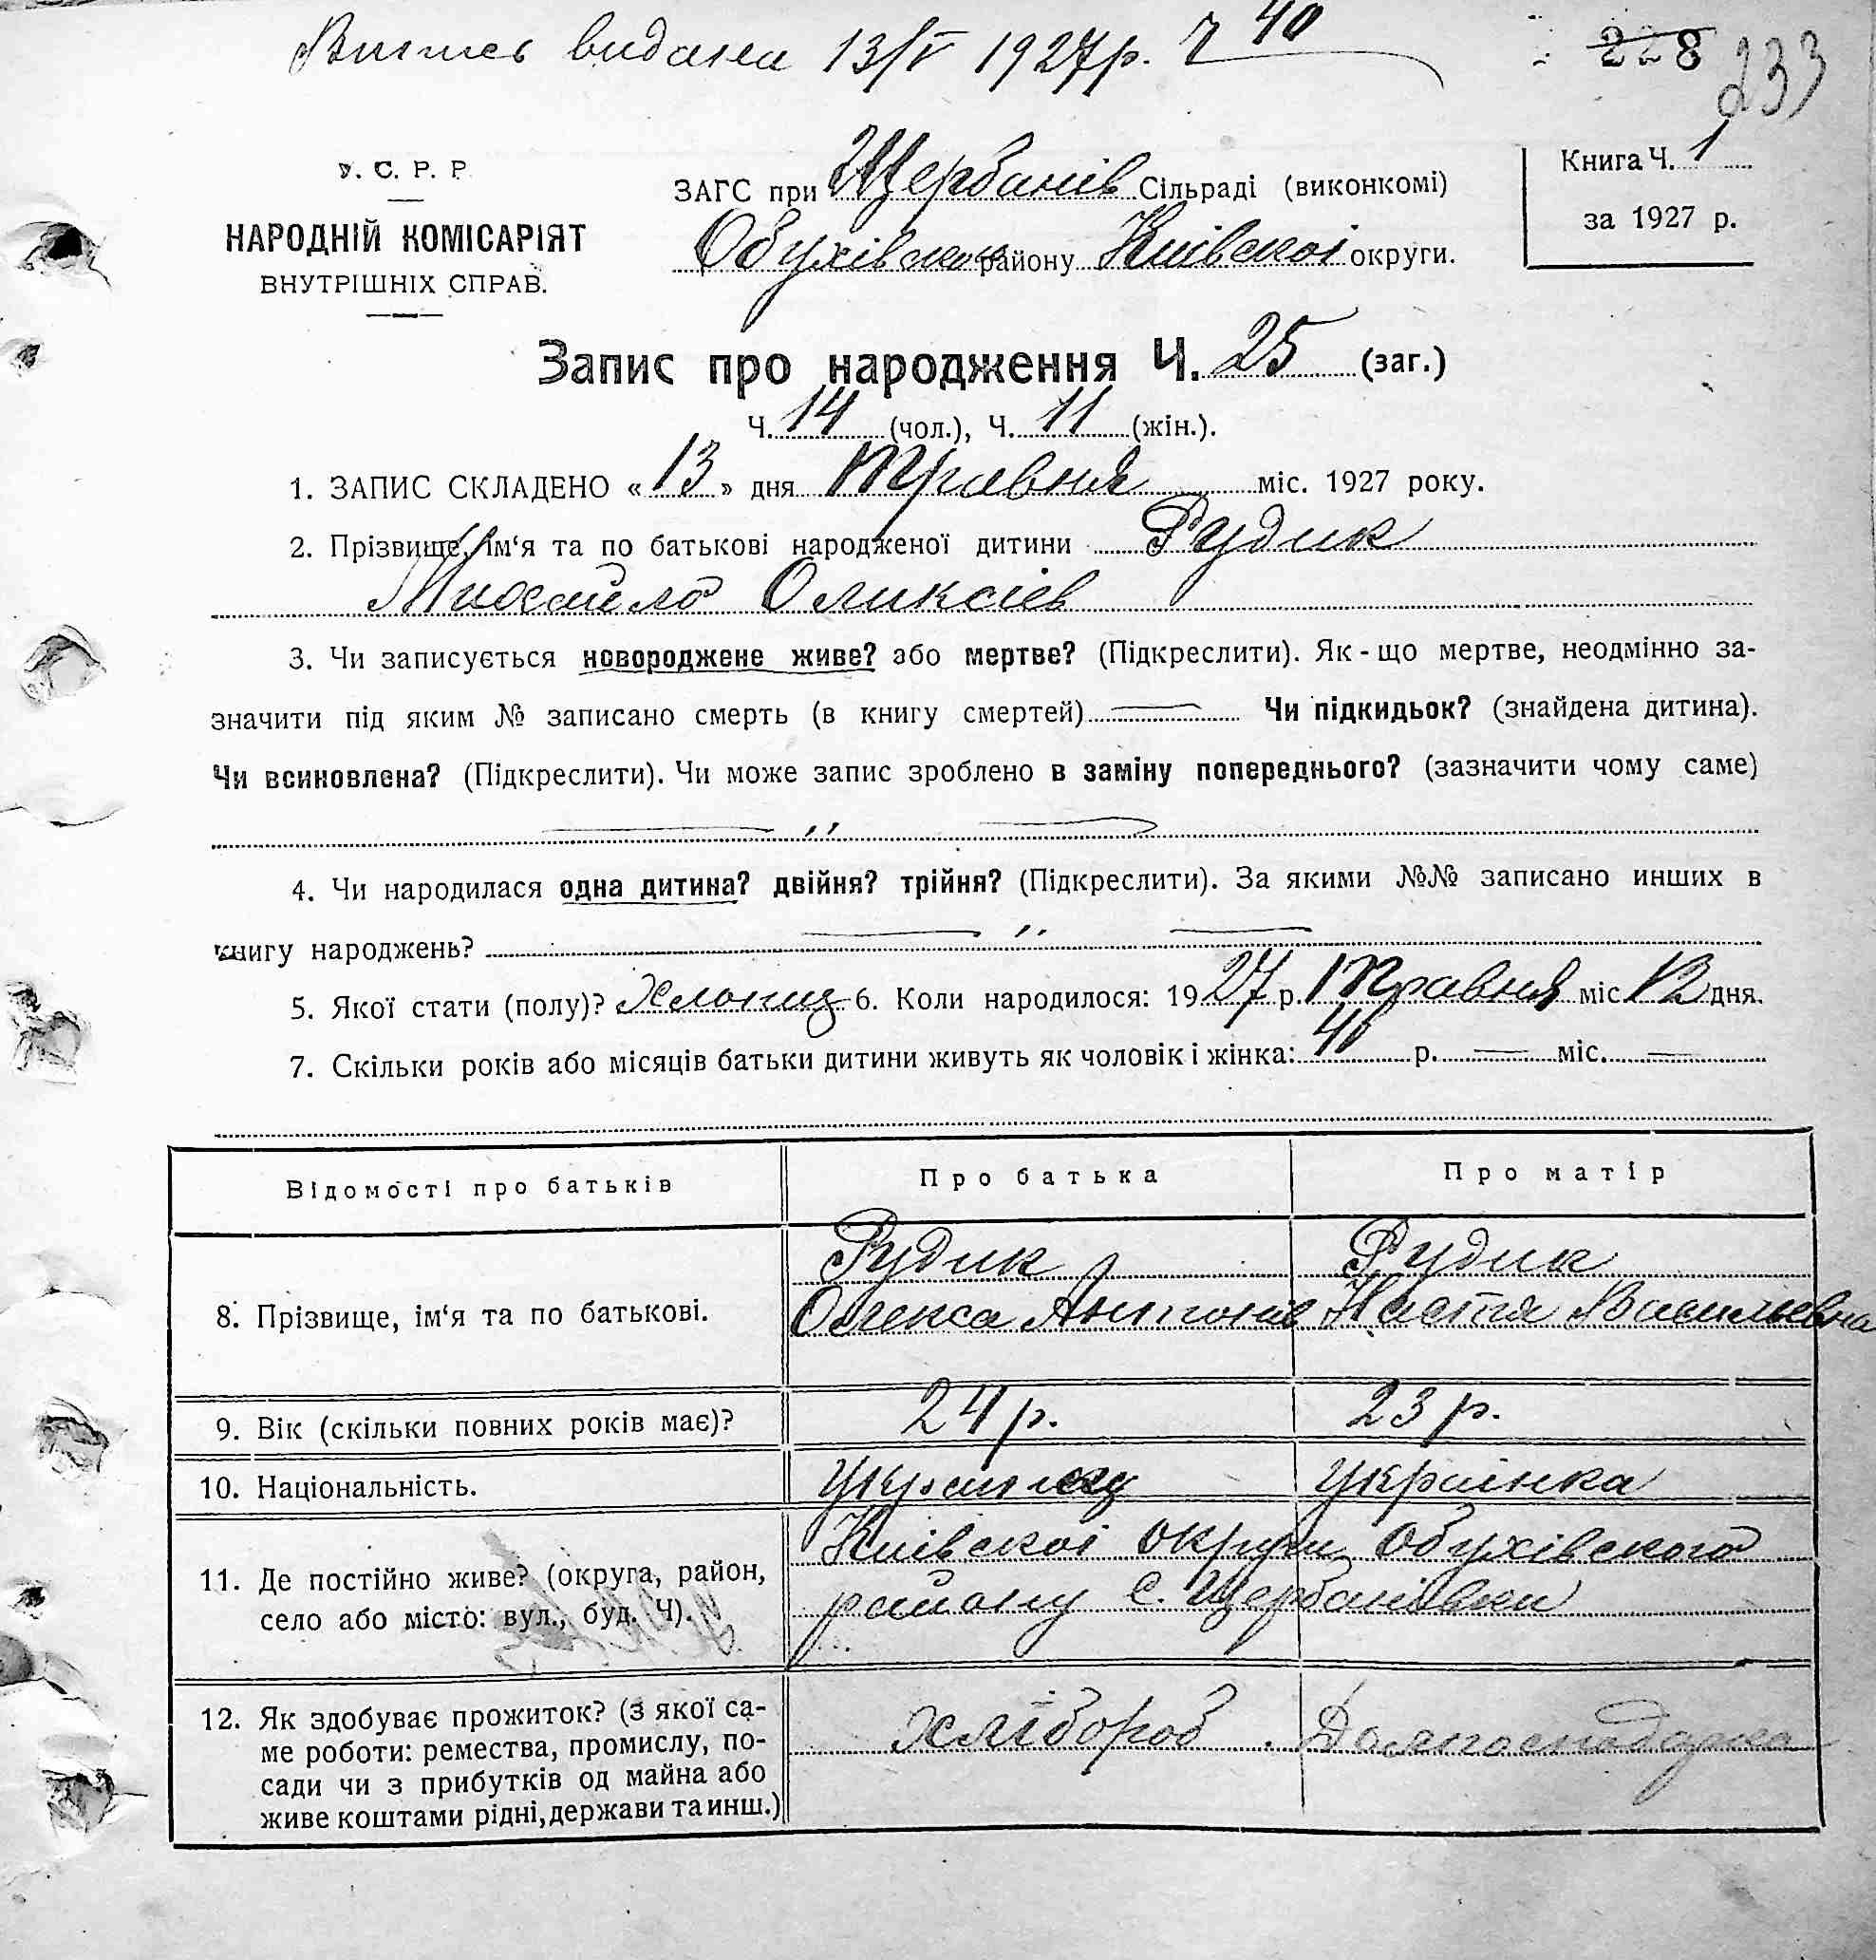 Витпсь видана 13/V 1927р. Ч 40
228 233
У. С. Р. Р.
НАРОДНІЙ КОМІСАРІЯТ
ВНУТРІШНІХ СПРАВ.
ЗАГС при Щербанів Сільраді (виконкомі)
Обухівском району Київскоі округи.
Книга Ч. 1
за 1927 р.
Запис про народження Ч. 25 (заг.)
Ч. 14 (чол.), Ч. 11 (жін.).
1. ЗАПИС СКЛАДЕНО «13» дня Травня міс. 1927 року.
2. Прізвище, ім‘я та по батькові народженої дитини Рудик
Михайло Оликсіев
3. Чи записується новороджене живе? або мертве? (Підкреслити). Як-що мертве, неодмінно за-
значити під яким № записано смерть (в книгу смертей) — Чи підкидьок? (знайдена дитина).
Чи всиновлена? (Підкреслити). Чи може запис зроблено в заміну попереднього? (зазначити чому саме)
— ,, —
4. Чи народилася одна дитина? двійня? трійня? (Підкреслити). За якими №№ записано инших в
книгу народжень? — ,, —
5. Якої стати (полу)? Хлопиц 6. Коли народилося: 1927 р. Травня міс 12 дня.
7. Скільки років або місяців батьки дитини живуть як чоловік і жінка: 4 р. — міс. —
Відомості про батьків Про батька Про матір
8. Прізвище, ім‘я та по батькові. Рудик Рудик
Олекса Антонів Настя Васильевна
9. Вік (скільки повних років має)? 24 р. 23 р.
10. Національність. Украинец Українка
11. Де постійно живе? (округа, район,
село або місто: вул., буд. Ч).
Київскоі округи Обухівского
району с. Щербанівки
12. Як здобуває прожиток? (з якої са-
ме роботи: ремества, промислу, по-
сади чи з прибутків од майна або
живе коштами рідні, держави та инш.)
хлібороб Домгосподарка